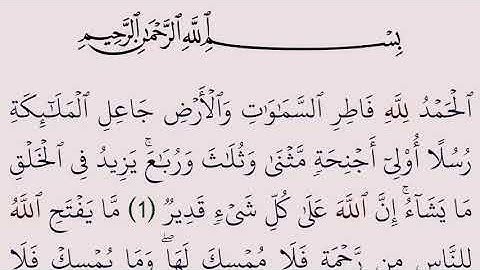 بِسْمِ ٱللَّهِ ٱلرَّحْمَٰنِ ٱلرَّحِيمِ
ٱلْحَمْدُ لِلَّهِ فَاطِرِ ٱلسَّمَٰوَٰتِ وَٱلْأَرْضِ جَاعِلِ ٱلْمَلَٰٓئِكَةِ
رُسُلًا أُو۟لِىٓ أَجْنِحَةٍ مَّثْنَىٰ وَثُلَٰثَ وَرُبَٰعَ ۚ يَزِيدُ فِى ٱلْخَلْقِ
مَا يَشَآءُ ۚ إِنَّ ٱللَّهَ عَلَىٰ كُلِّ شَىْءٍ قَدِيرٌ (1) مَّا يَفْتَحِ ٱللَّهُ
لِلنَّاسِ مِن رَّحْمَةٍ فَلَا مُمْسِكَ لَهَا ۖ وَمَا يُمْسِكْ فَلَا